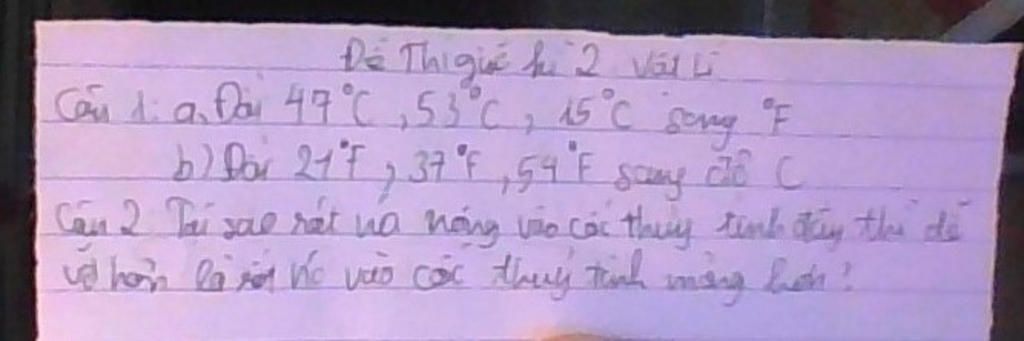 Đề Thi giữa kì 2 Vật Lí
Câu 1: a, Đổi 47°C, 53°C, 15°C sang °F
b) Đổi 21°F, 37°F, 54°F sang độ C
Câu 2 Tại sao rót nước nóng vào cốc thuỷ tinh dày thì dễ
vỡ hơn là rót nước vào cốc thuỷ tinh mỏng hơn?